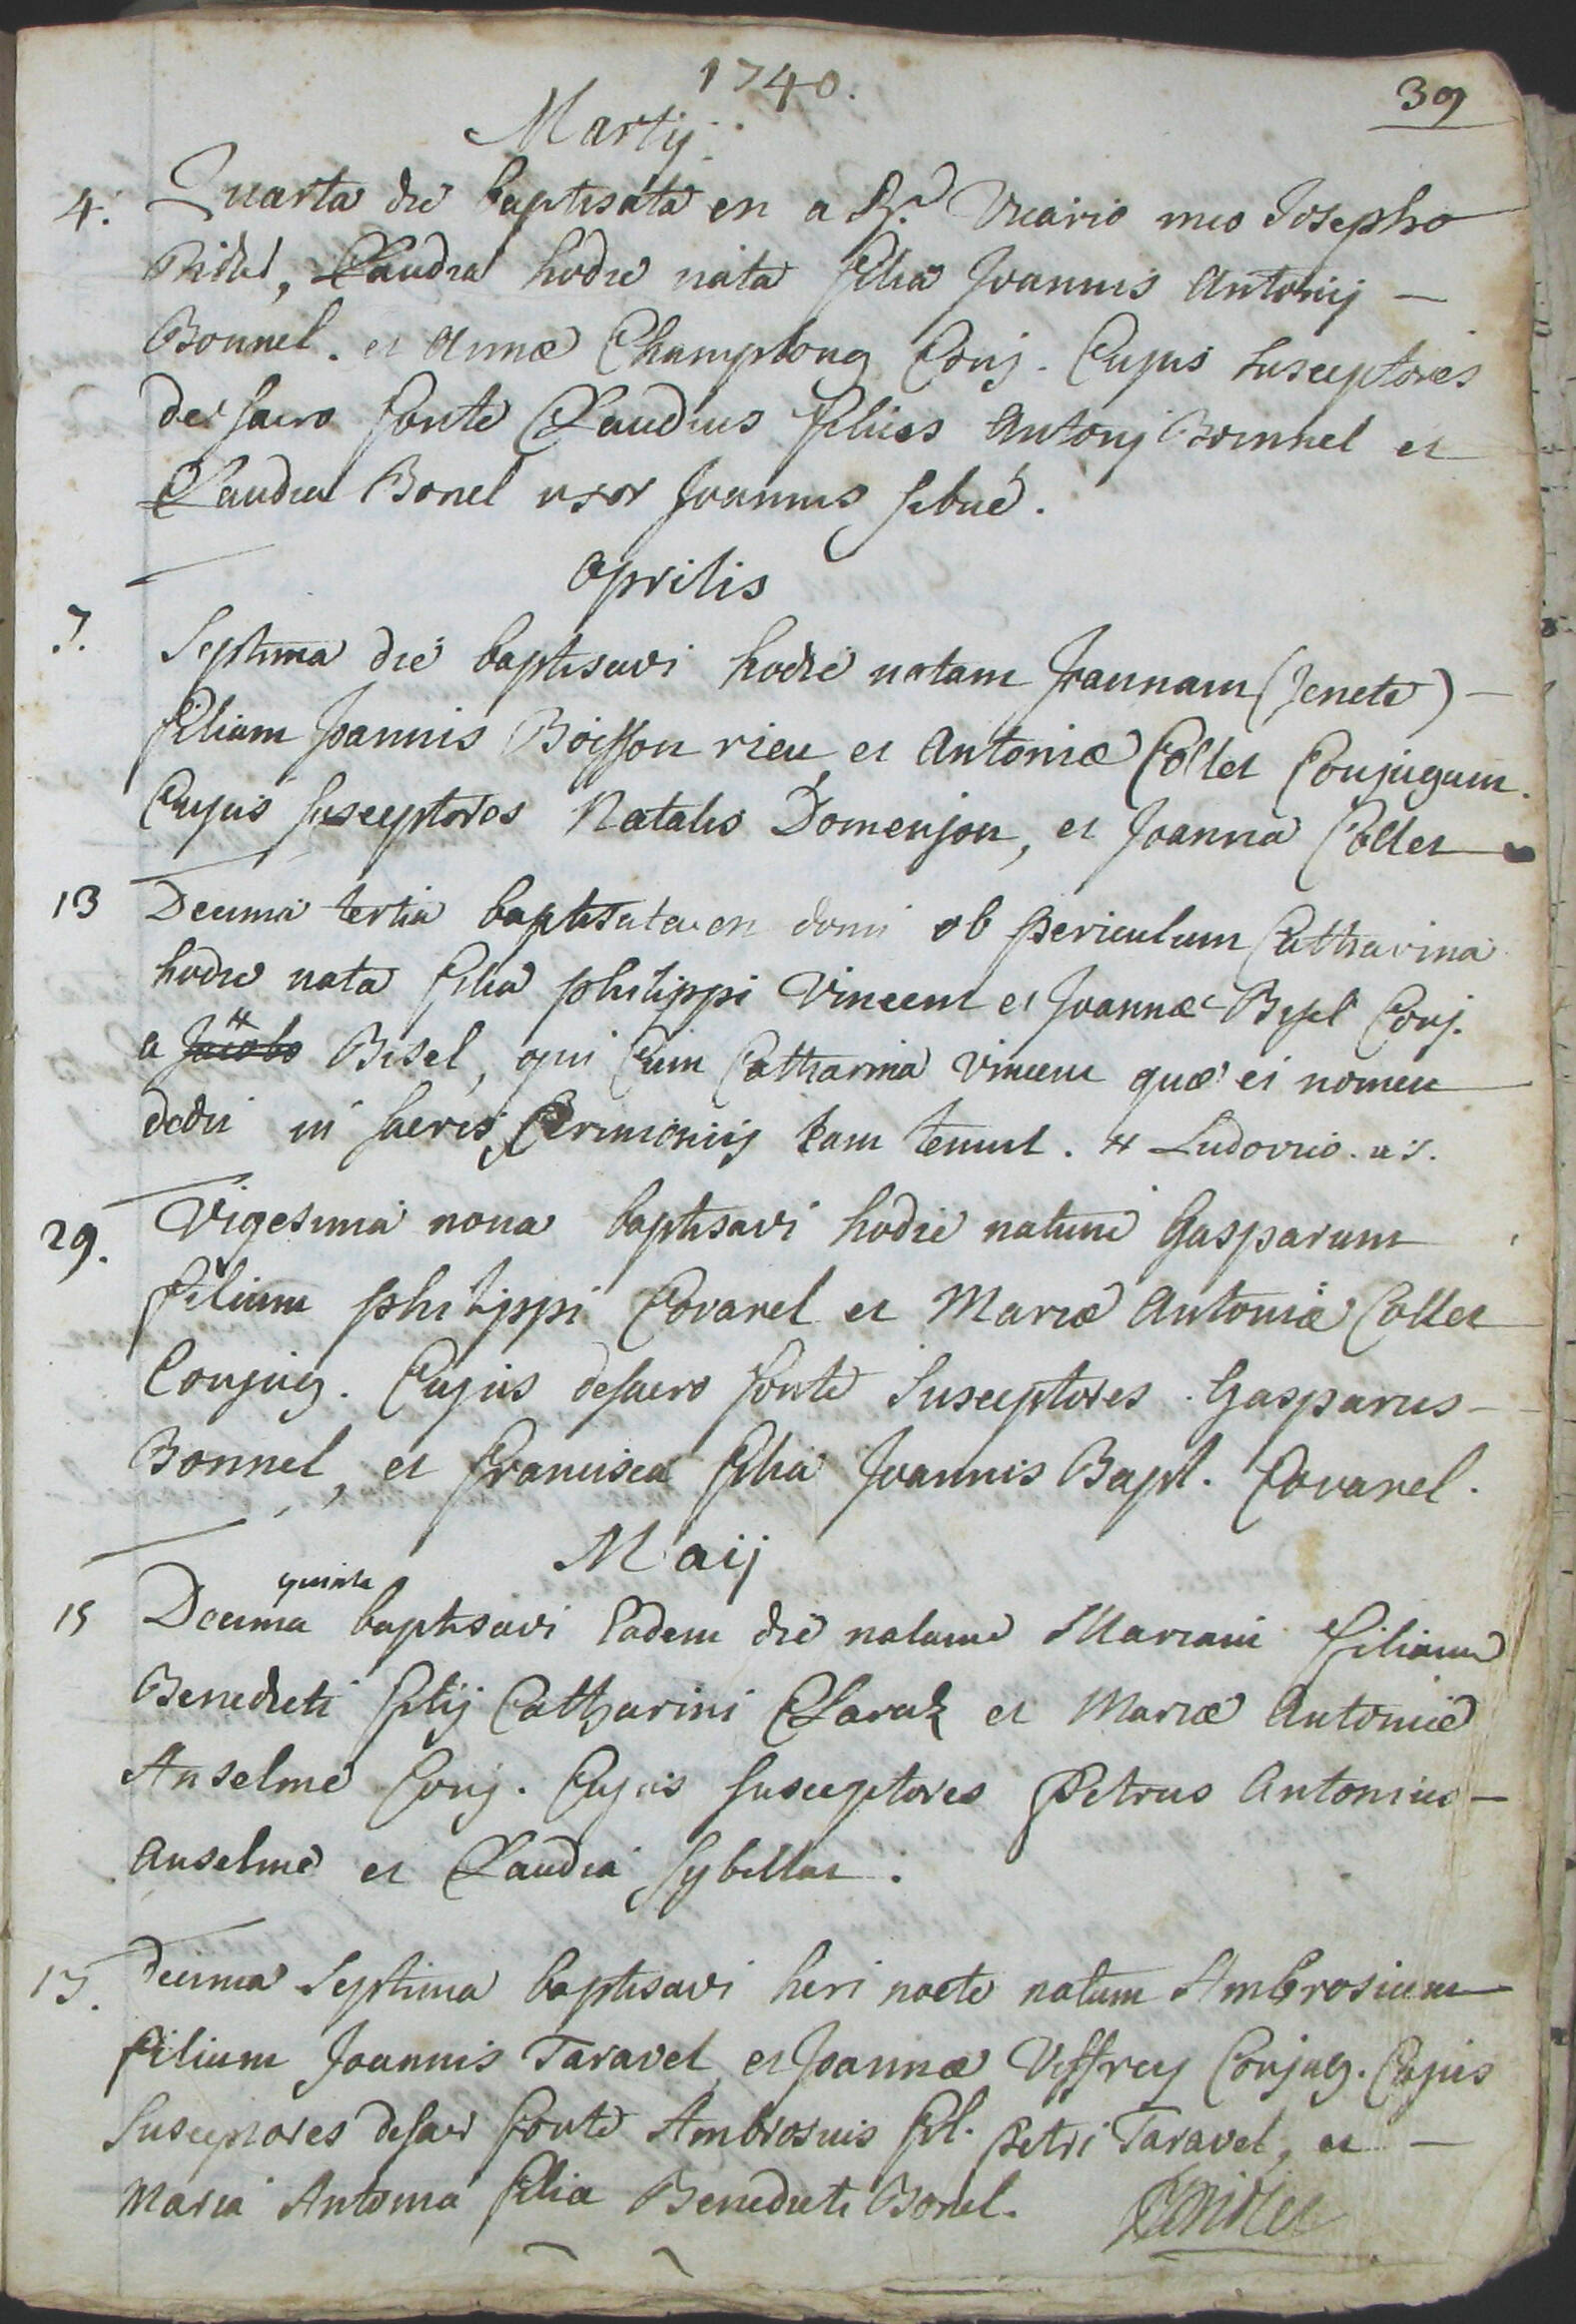 1740.
39
Martij.
4. Quarta die baptisata est a Rdo Vicario meo Josepho
Claudia hodie nata filia Joannis Antonij —
Bonnel. et Annæ Champlong Conj. Cujus susceptores
de sacro fonte Claudius filius Antonij Bonnel et
Claudia Bonel uxor Joannis Sibué.
Aprilis
7. Septima die baptisavi hodie natam Joannam (Jenete) —
filiam Joannis Boisson rieu et Antoniæ Collet Conjugum.
Cujus susceptores Natalis Domenjon, et Joanna Collet
13 Decima tertia baptisata est domi ob periculum Catharina
hodie nata filia philippi Vincent et Joannæ Bisel Conj.
a Jacobo # Bisel, qui Cum Catharina Vincent quæ ei nomen
dedit in sacris Cerimoniis eam tenuit. # Ludovico.
29. Vigesima nona baptisavi hodie natum Gasparum
filium philippi Covarel et Mariæ Antoniæ Collet
Conjug. Cujus de sacro fonte Susceptores Gasparus —
Bonnel, et francisca filia Joannis Bapt. Covarel.
Maij
15 Decima quinta baptisavi Eadem die natam Mariam filiam
Benedicti filij Catharini Claraz et Mariæ Antoniæ
Anselme Conj. Cujus susceptores Petrus Antonius —
Anselme et Claudia Sybillat.
17. decima Septima baptisavi heri nocte natum Ambrosium
filium Joannis Taravel et Joannæ Viffrey Conjug. Cujus
Susceptores de sacro fonte Ambrosius fil. Petri Taravel, et —
Maria Antonia filia Benedicti Bonel.